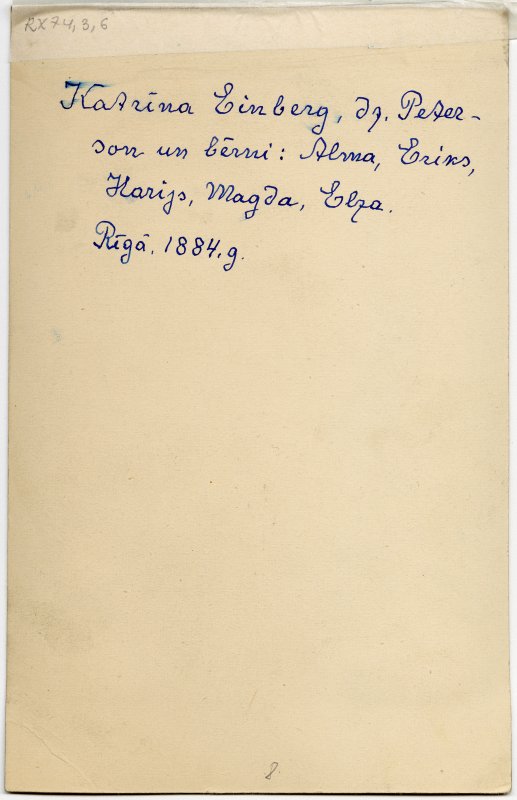 RX74,3,6
Katrīna Einberg, dz. Peter-
son un bērni: Alma, Eriks,
Harijs, Magda, Elza.
Rīgā. 1884.g.
8